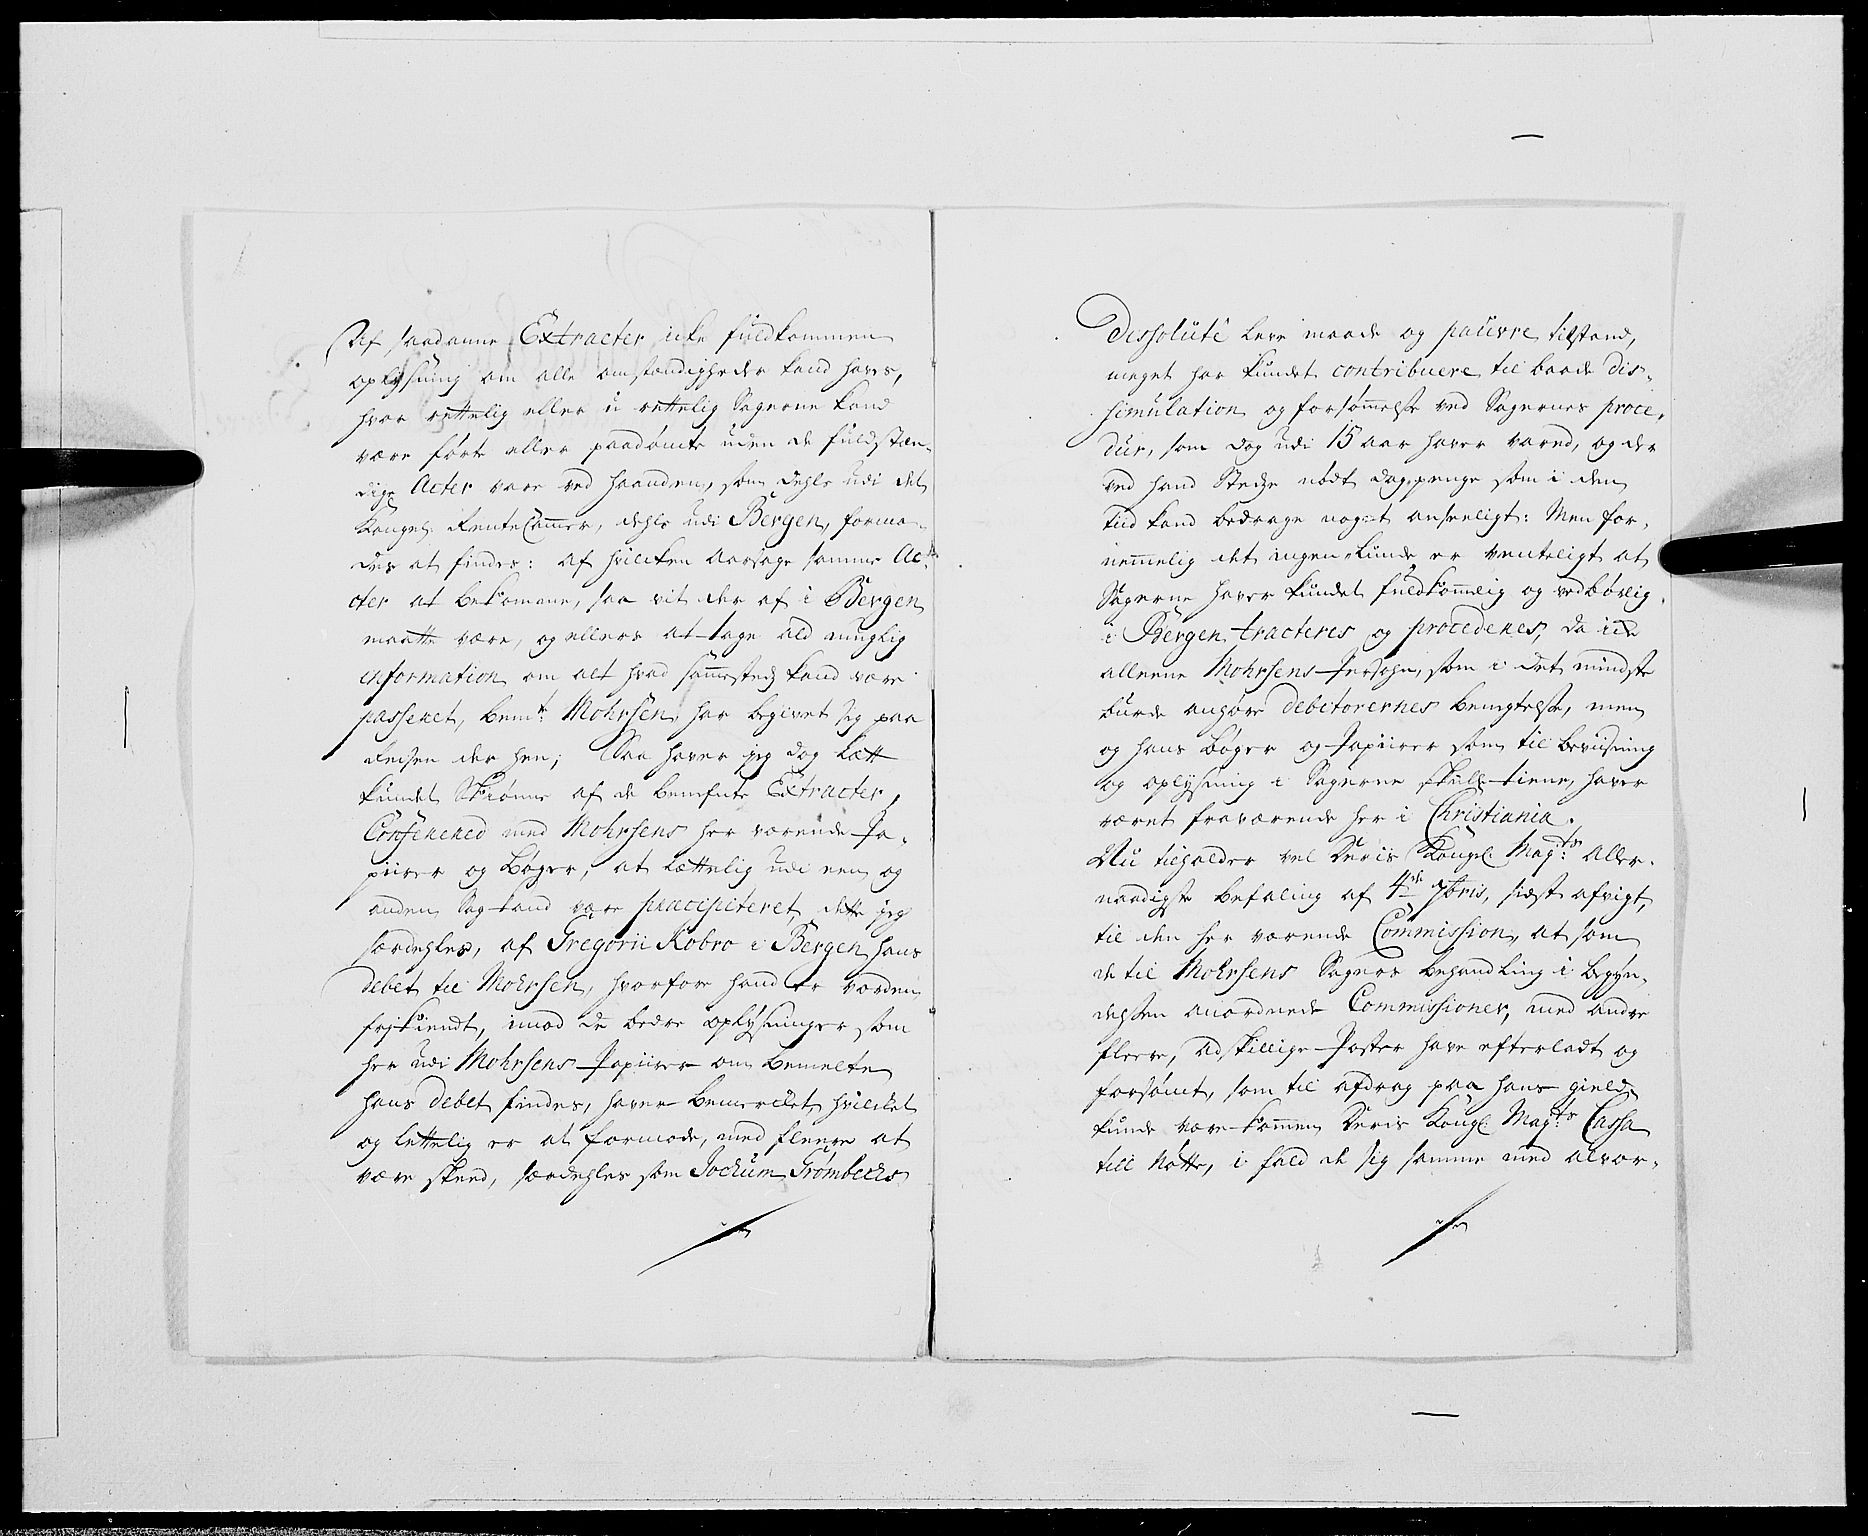 Af saadanne Extracter icke fuldkommen
oplysning om alle omstændigheder kand haves,
hvor rettelig eller u rettelig Sagerne kand
være førte eller paadømte uden de fuldstæn-
dige Acter vare ved haanden, som dehls udi det
Kongel. RenteCammer, dehls udi Bergen, forma-
des at findes: af hvilcken aarsage samme Ac-
cter at bekomme, saa vit der af i Bergen
maatte være, og ellers at tage ald muuglig
information om alt hvad sammesteds kand være
passeret, bemte Mohrsen har begivet sig paa
Reisen der hen; Saa haver jeg dog lætt
kundet Skiønne af de benefnte Extracter,
Confereret med Mohrsens her værende Pa-
piirer og Bøger, at lættelig udi een og
anden Sag kand være præcipiteret, dette jeg
særdehles, af Gregorii Kobro i Bergen hans
debet til Mohrsen, hvorfore hand er vorden
frikiendt, imod de bedre oplysninger som
her udi Mohrsens Papiirer om bemelte
hans debet findes, haver bemercket, hvilcket
og lettelig er at formode, med fleere at
være skeed, særdehles som Jochum Trombechs
Dissolute leve maade og pauvre tilstand,
meget har kundet contribuere til baade dis-
simulation og forsømmelse ved Sagernes proce-
dur, som dog udi 15 aar haver vared, og der
ved hand Stedse nødt dagpenge som i den
tiid kand bedrage noget anseeligt: Men for-
nemmelig det ingenlunde er venteligt at
Sagerne haver kundet fuldkommelig og vedbørlig
i Bergen tracteres og procederes, da icke
alleene Mohrsens Persohn, som i det mindste
burde anhøre debitorernes benegtelse, men
og hans bøger og Papiirer som til beviisning
og oplysning i Sagerne skulle tiene, haver
været fraværende her i Christiania.
Nu tilholder vel Deris Kongl. Mayts Aller-
naadigste befaling af 4de 7bris, sidst afvigt,
til den her værende Commission, at som
de til Mohrsens Sagers behandling i begyn-
delsen anordnede Commissioner, med andre
fleere, adskillige Poster have efterladt og
forsømt, som til afdrag paa hans gield
kunde være kommen Deris Kongl Mayts Cassa
till Notte, i fald de sig samme med alvor-